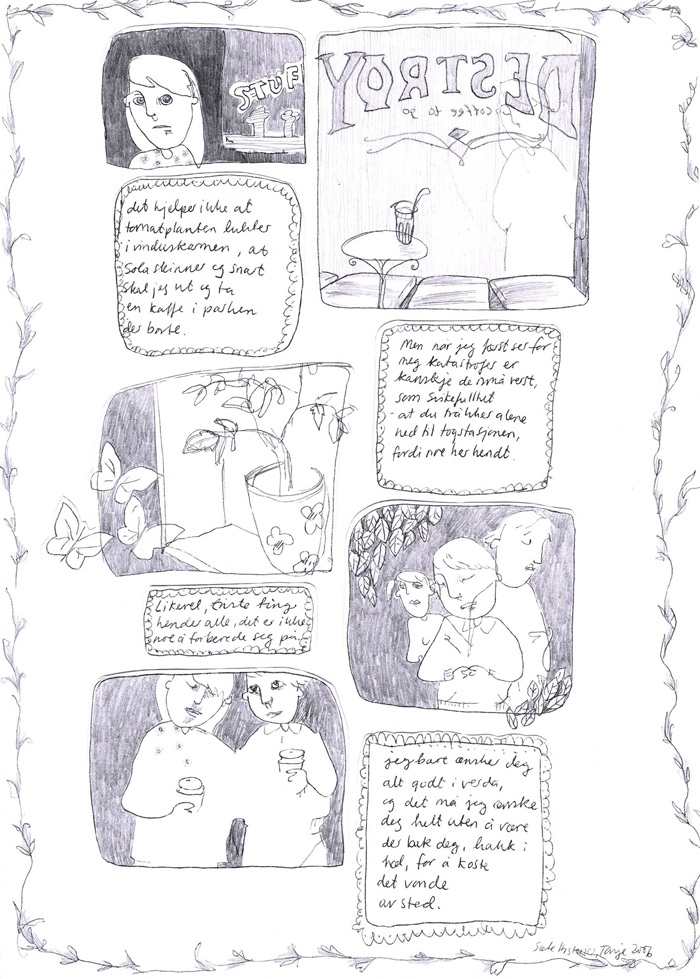 FUTZ
DESTROY
coffee to go
det hjelper ikke at
tomatplanten lukter
i vinduskarmen, at
Sola skinner og snart
skal jeg ut og ta
en kaffe i parken
der borte.
Men når jeg først ser for
meg katastrofer er
kanskje de små verst,
som svikefullhet
- at du tråkker alene
ned til togstasjonen,
fordi noe har hendt.
Likevel, triste ting
hender alle, det er ikke
noe å forberede seg på.
jeg bare ønsker deg
alt godt i verda,
og det må jeg ønske
deg helt uten å være
der bak deg, hakk i
hæl, for å koste
det vonde
av sted.
2006